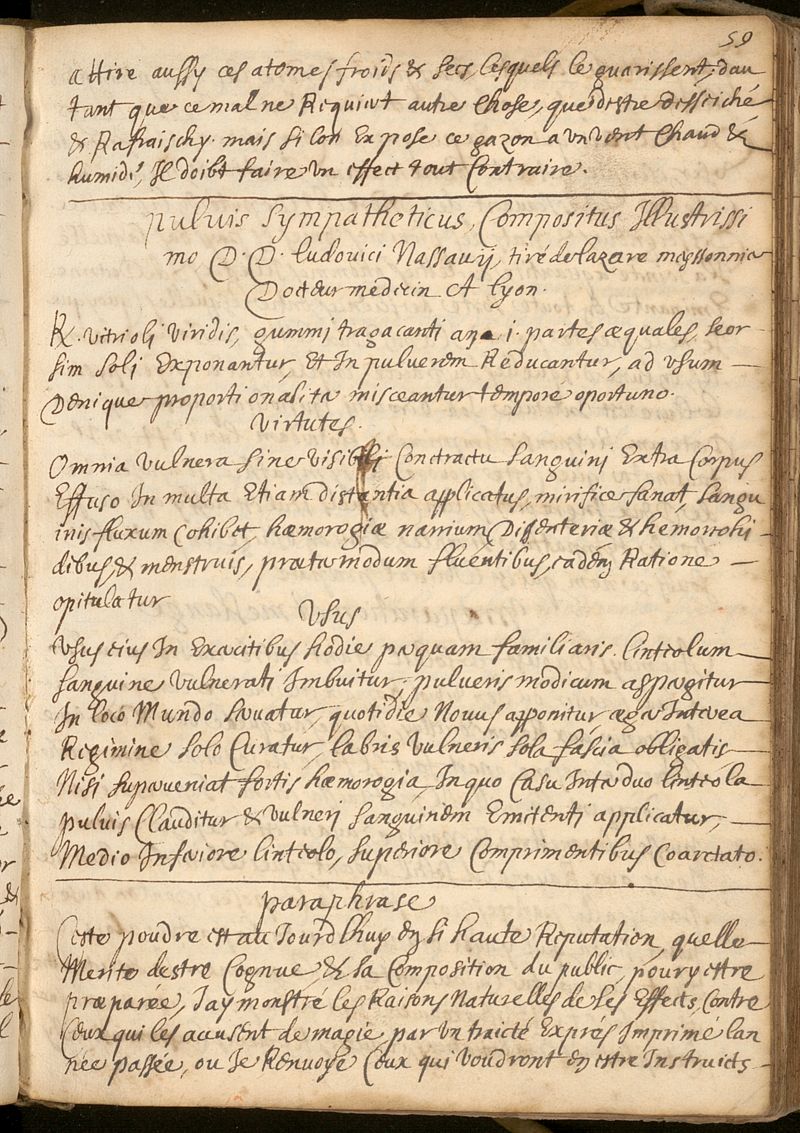 59
attire aussy ces atomes froids & secs, lesquels le guarissent, dau
tant que ce mal ne Requiert autre Chose, que destre desseiché
& Rafraischy. mais si lon Expose ce gazon a un vent Chaud &
humide, Il doibt faire un effect tout Contraire.
pulvis Sympatheticus, Compositus Illustrissi
mo D. D. Ludovici Nassavij, tiré de lazare meyssonnier
Docteur medecin A lyon.
℞. vitrioli viridis, gummi tragacanti ana i. partes æquales, seor
sim soli Exponantur, Et In pulverem Reducantur, ad usum
Denique proportionalita misceantur tempore oportuno.
virtutes.
Omnia vulnera sine visibili Conctractu sanguini Extra Corpus
Effuso In multa Etiam distantia applicatus, mirifice sanat, sangu
inis fluxum Cohibet, hæmorogiæ narrium Dissenteriæ & hemorrohi
dibus, & menstruis, præter modum fluentibus, eadem Ratione
opitulatur
Usus
Usus eius In Exercitibus hodie perquam familiaris. linteolum
sanguine vulnerati Imbuitur, pulveris modicum aspergitur
In loco Mundo servatur, quotidie Novus apponitur æger Interea
Regimine solo Curatur, labris vulneris sola fascia obligatis
Nisi superveniat fortis hæmorogia, In quo Casu Inter duo linteola
pulvis Clauditur & vulneri sanguinem Emitenti applicatur,
Medio Inferiore linteolo, superiore Comprimentibus Coarctato.
paraphrase
Ceste poudre est au Jourdlhuy en si haute Reputation, quelle
Merite destre Cognue, & sa Composition du public, pour y estre
præparée, Jay monstré les Raisons Naturelles de ses Effects, Contre
Ceux qui les accusent de magie, par un traicté Expres Imprimé lan
née passée, ou Je Renvoye Ceux qui voudront en estre Instruicts